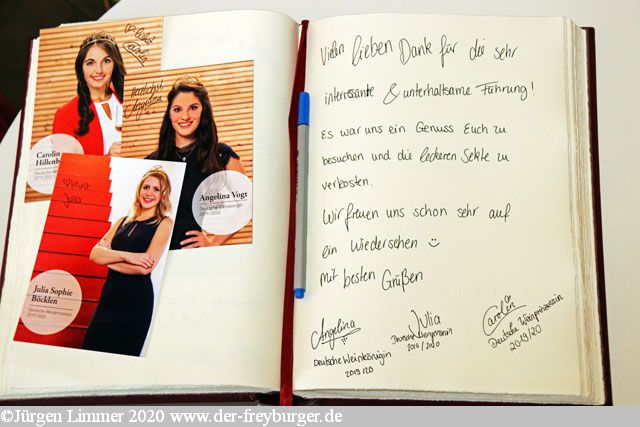 Alles Liebe
Carolin
Carolin
Hillenb
Deutsche Wein
2019/2020
Herzlichst
Angelina
Angelina Vogt
Deutsche Weinkönigin
2019/2020
Julia
Julia Sophie
Böcklen
Deutsche Weinprinzessin
2019/2020
Vielen lieben Dank für die sehr
interessante & unterhaltsame Führung!
Es war uns ein Genuss Euch zu
besuchen und die leckeren Sekte zu
verkosten.
Wir freuen uns schon sehr auf
ein Wiedersehen
Mit besten Grüßen
Angelina
Deutsche Weinkönigin
2019/20
Julia
Deutsche Weinprinzessin
2019/2020
Carolin
Deutsche Weinprinzessin
2019/20
©Jürgen Limmer 2020 www.der-freyburger.de